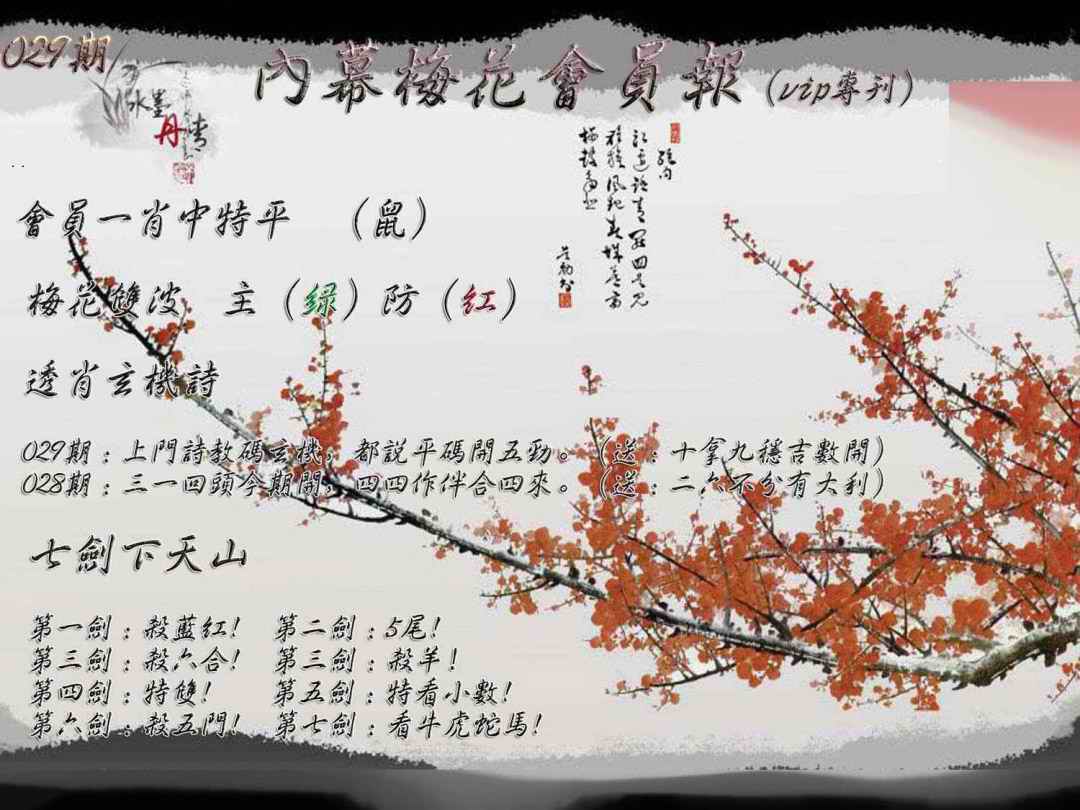 029期
水墨
丹青
內幕梅花會員報(vip專刊)
會員一肖中特平 (鼠)
梅花雙波 主(绿)防(红)
透肖玄機詩
029期:上門詩教碼玄機,都説平碼開五勁。(送:十拿九穩吉數開)
028期:三一四頭今期開,四四作伴合四來。(送:二六不分有大利)
七劍下天山
第一劍:殺藍紅! 第二劍:5尾!
第三劍:殺六合! 第三劍:殺羊!
第四劍:特雙! 第五劍:特看小數!
第六劍:殺五門! 第七劍:看牛虎蛇馬!